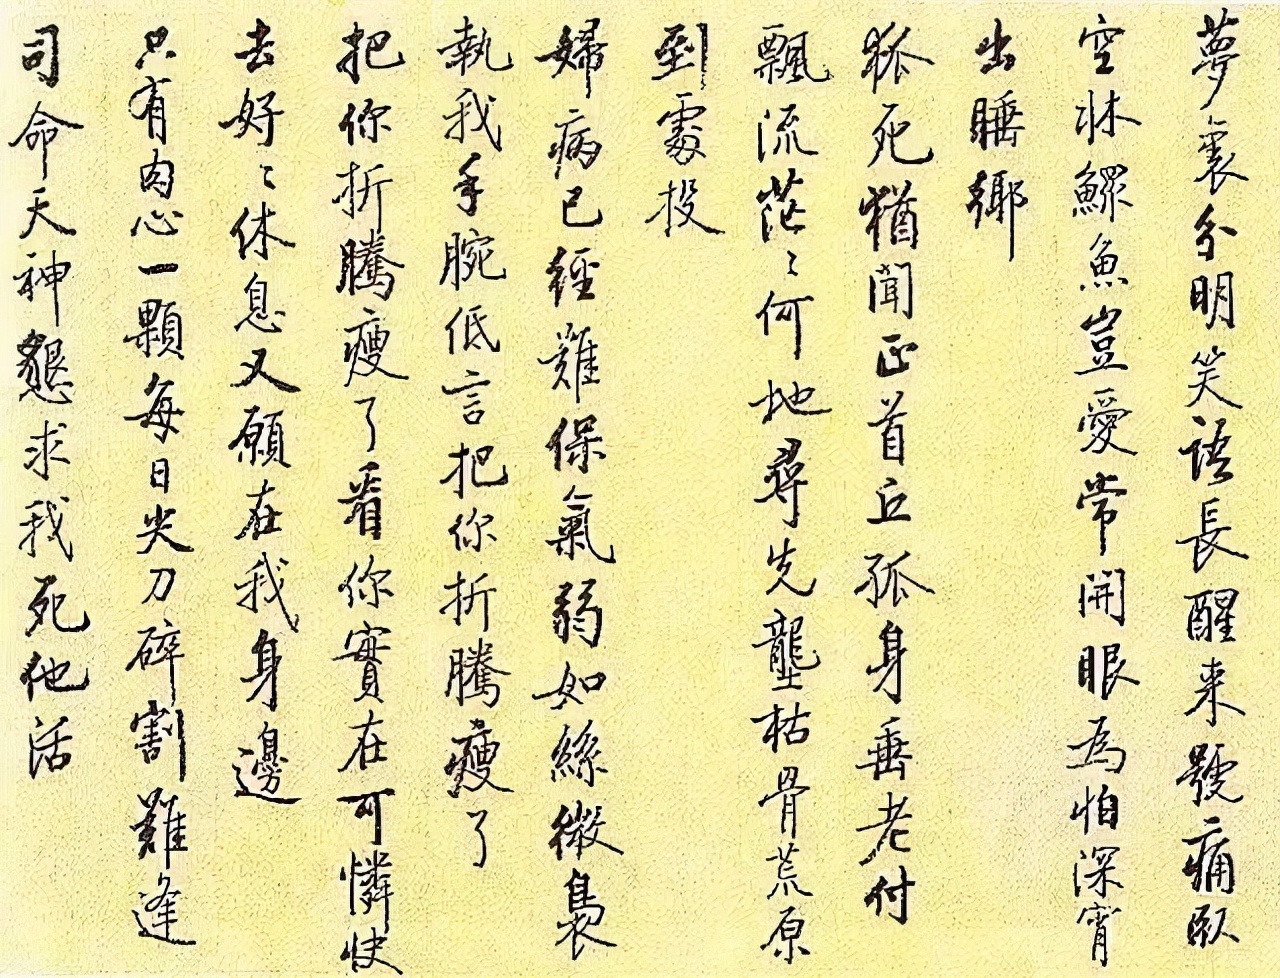 夢裏分明笑語長醒来號痛臥
空牀鰥魚豈愛常開眼為怕深宵
出睡鄉
狐死猶聞正首丘孤身垂老付
飄流茫〻何地尋先壟枯骨荒原
到處投
婦病已經難保氣弱如絲微裊
執我手腕低言把你折騰瘦了
把你折騰瘦了看你實在可憐快
去好〻休息又願在我身邊
只有肉心一顆每日尖刀碎割難逢
司命天神懇求我死他活